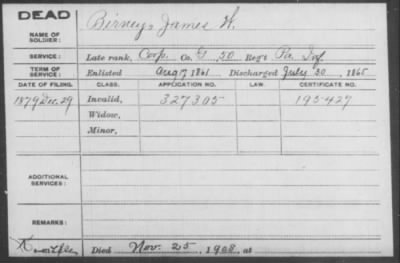 DEAD
NAME OF SOLDIER: Birney, James W.
SERVICE: Late rank, Corp. Co. G, 50 Reg't Pa. Inf.
TERM OF SERVICE: Enlisted Aug 17 1861 Discharged July 30, 1865
DATE OF FILING. CLASS. APPLICATION NO. LAW. CERTIFICATE NO.
1879 Dec. 29 Invalid, 327305 195427
Widow,
Minor,
ADDITIONAL SERVICES:
REMARKS:
Died Nov. 25, 1908, at